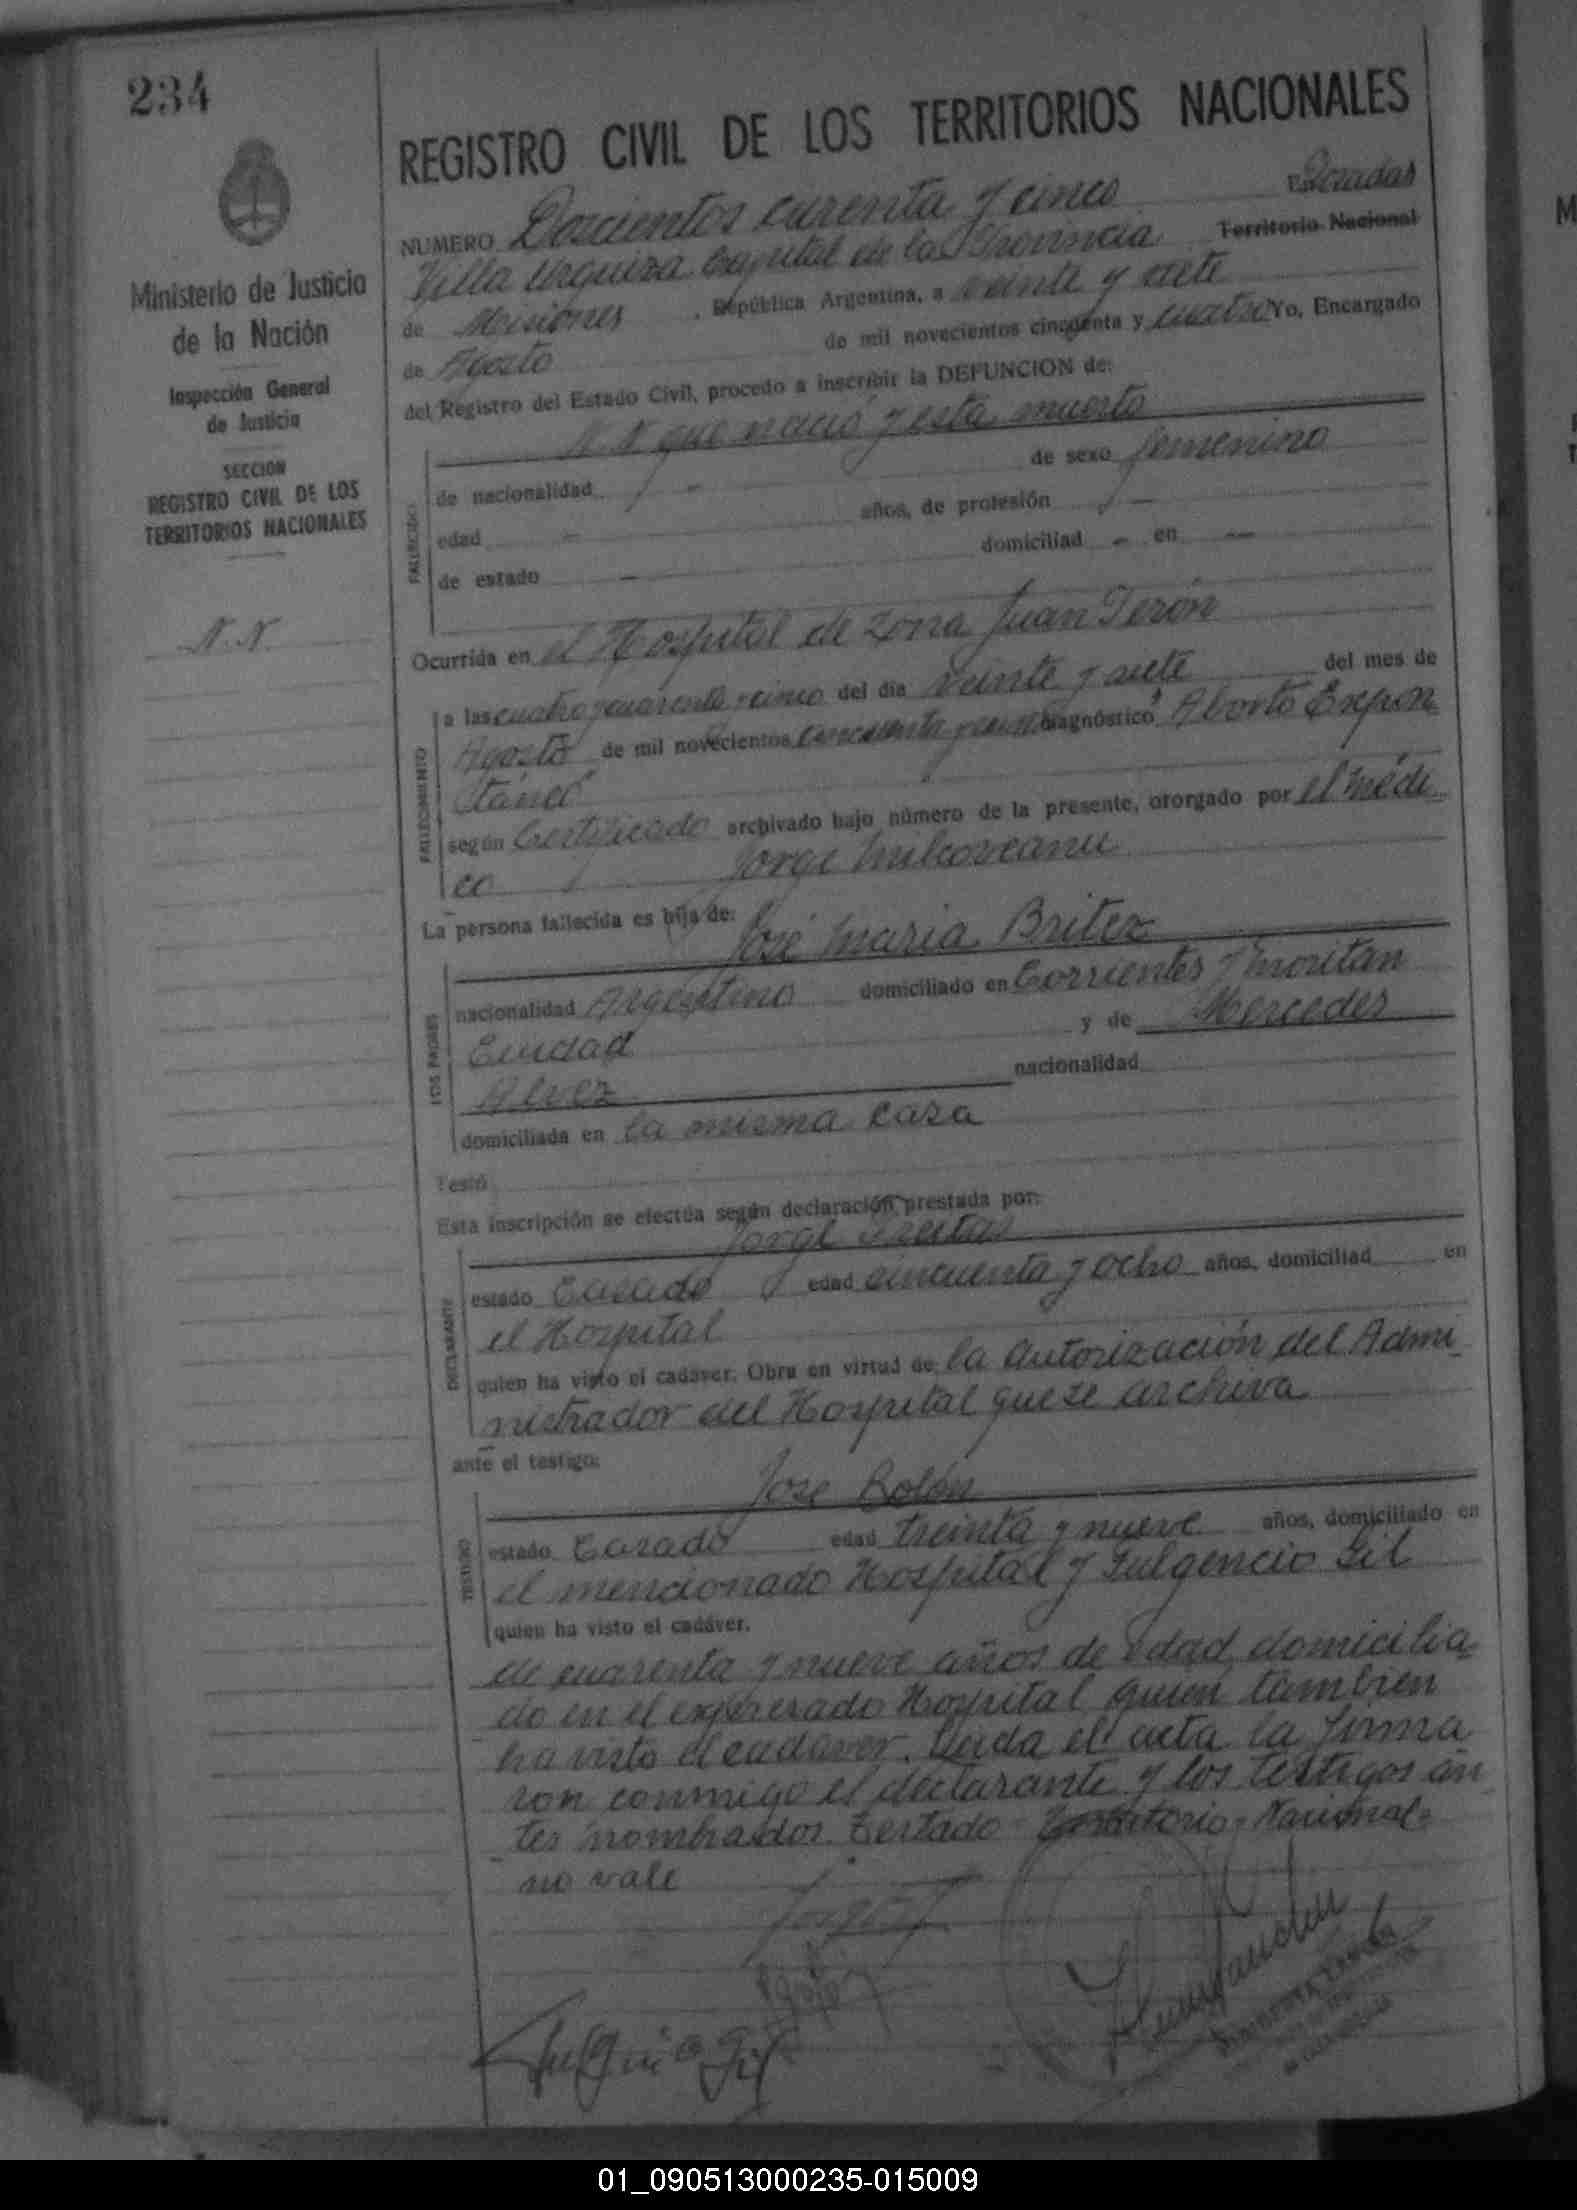 234
REGISTRO CIVIL DE LOS TERRITORIOS NACIONALES
Ministerio de Justicia
de la Nación
Inspección General
de Justicia
SECCION
REGISTRO CIVIL DE LOS
TERRITORIOS NACIONALES
N. N.
NUMERO Doscientos curenta y cinco Posadas
Villa Urquiza Capital de la Provincia Territorio Nacional
de Misiones, República Argentina, a veinte y siete
de Agosto de mil novecientos cincuenta y cuatro Yo, Encargado
del Registro del Estado Civil, procedo a inscribir la DEFUNCION de:
N. N que nació y está muerto
FALLECIDO
de nacionalidad - de sexo femenino
edad - años, de profesión -
de estado - domiciliad - en -
Ocurrida en el Hospital de Zona Juan Perón
FALLECIMIENTO
a las cuatro y cuarenta y cinco del día veinte y siete del mes de
Agosto de mil novecientos cincuenta y cuatro diagnóstico "Aborto Expon
táneo"
según Certificado archivado bajo número de la presente, otorgado por el médi
co Jorge Milcoveanu
La persona fallecida es hija de:
José Maria Britez
LOS PADRES
nacionalidad Argentino domiciliado en Corrientes y Moritan
Ciudad y de Mercedes
Alvez nacionalidad
domiciliada en la misma casa
Testó
Esta inscripción se efectúa según declaración prestada por:
Jorge Freitas
DECLARANTE
estado Casado edad cincuenta y ocho años, domiciliad en
el Hospital
quien ha visto el cadáver. Obra en virtud de la Autorización del Admi
nistrador del Hospital que se archiva
ante el testigo:
Jose Rolón
TESTIGO
estado Casado edad treinta y nueve años, domiciliado en
el mencionado Hospital y Fulgencio Gil
quien ha visto el cadáver.
de cuarenta y nueve años de edad domicilia
do en el expresado Hospital quien también
ha visto el cadaver. Leida el acta la firma
ron conmigo el declarante y los testigos an
tes nombrados. Testado - Territorio - Nacional -
no vale
01_090513000235-015009